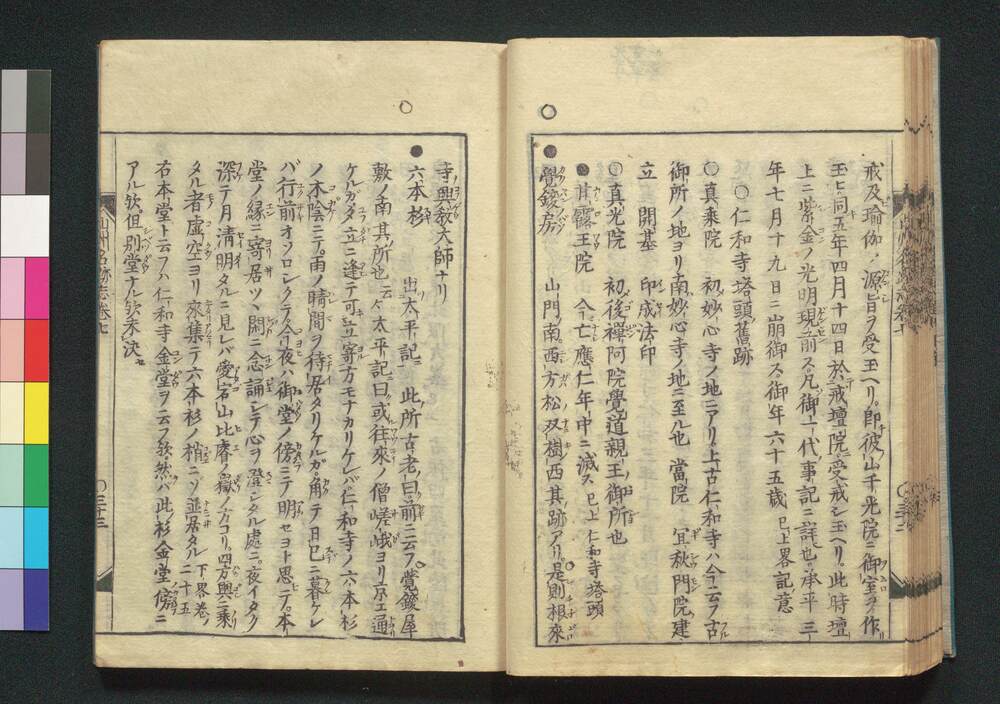 戒及瑜伽ノ源旨ヲ受玉ヘリ。即彼山千光院ニ御室ヲ作リ
玉ヒ同五年四月十四日於戒壇院ニ受戒シ玉ヘリ。此時壇
上ニ紫金ノ光明現前ス凡御一代事記ニ詳也承平三
年七月十九日ニ崩御ス御年六十五歳 已上畧記意
○仁和寺塔頭舊跡
○真乘院 初妙心寺ノ地ニアリ。上古仁和寺ハ今云フ古
御所ノ地ヨリ南妙心寺ノ地ニ至ル也 當院 宜秋門院建
立 開基 印成法印
○真光院 初後禪河院覺道親王御所也
●甘露王院 今亡應仁年中ニ滅ス 已上仁和寺塔頭
●覺鑁房 山門南西方松双樹西其跡アリ。是則根來
寺興教大師ナリ
●六本杉 出太平記ニ 此所古老ノ曰前ニ云フ覺鑁屋
敷ノ南其所也ト云々太平記曰或往來ノ僧嵯峨ヨリ京エ通
ケルガ夕立ニ逢テ可立寄方モナカリケレバ仁和寺ノ六本杉
ノ木陰ニテ。雨ノ晴間ヲ待居タリケルガ。角テ日已ニ暮ケレ
バ行前オソロシクテ今夜ハ御堂ノ傍ニテ明セヨト思テ。本
堂ノ縁ニ寄居ツヽ閑ニ念誦シテ心ヲ澄シタル處ニ。夜イタク
深テ月清明タルニ見レバ愛宕山比叡ノ嶽ノ方ヨリ。四方輿ニ乘
タル者虚空ヨリ來集テ六本杉ノ梢ニゾ並居タル 下畧巻ノ二十五
右本堂ト云フハ仁和寺金堂ヲ云フ歟。然バ此杉金堂ノ傍ニ
アル歟。但別堂ナル歟未決セ
山州名跡志巻七
○三十三